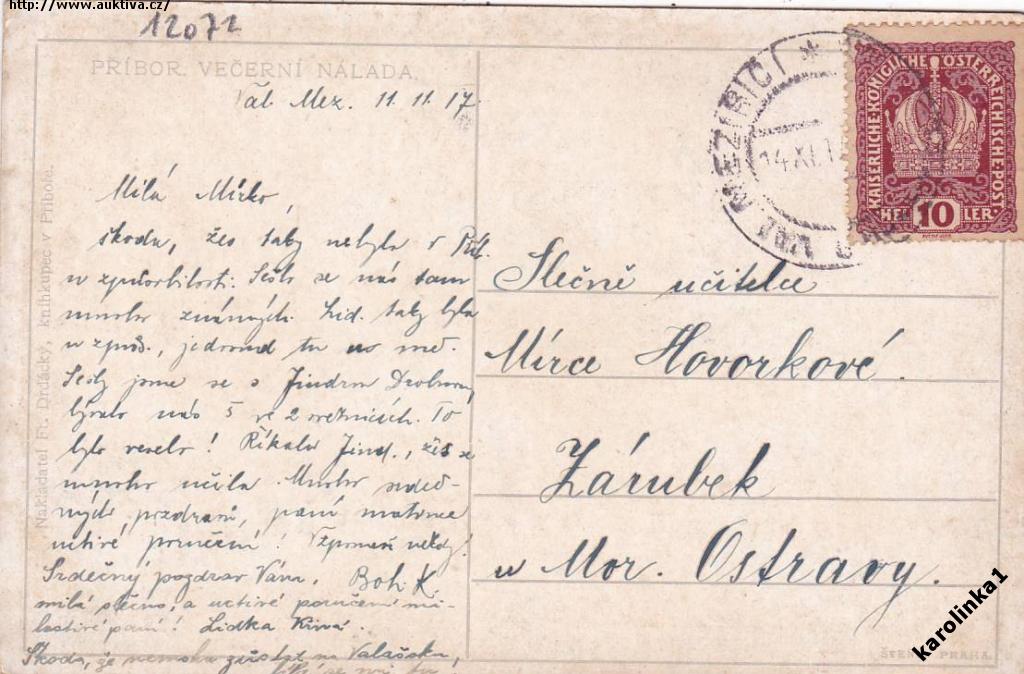 http://www.auktiva.cz/
12071
PŘÍBOR. VEČERNÍ NÁLADA.
Val. Mez. 11. 11. 17.
Milá Mirko,
škoda, žes taky nebyla v
Sešlo se nás tam
mnoho známých. Lid. taky byla
Sešly jsme se s Jindrou
bývalo nás 5 ve 2
To
bylo veselo! Říkala Jind., žes se
mnoho učila. Mnoho srdeč-
ných pozdravů, paní matince
uctivé poručení! Vzpomeň někdy!
Srdečný pozdrav Vám, Boh. K.
milá slečno, a uctivé poručení mi-
lostivé paní! Lidka
Škoda, že zůstat na Valašsku,
Nakladatel Fr. Drdácký, knihkupec v Příboře.
VAL. MEZIŘIČÍ
14 XI. 1
KAISERLICHE KÖNIGLICHE ÖSTERREICHISCHE POST
10
HELLER
Slečně učitelce
Mírce Hovorkové.
Zárubek
u Mor. Ostravy.
PRAHA.
karolinka1